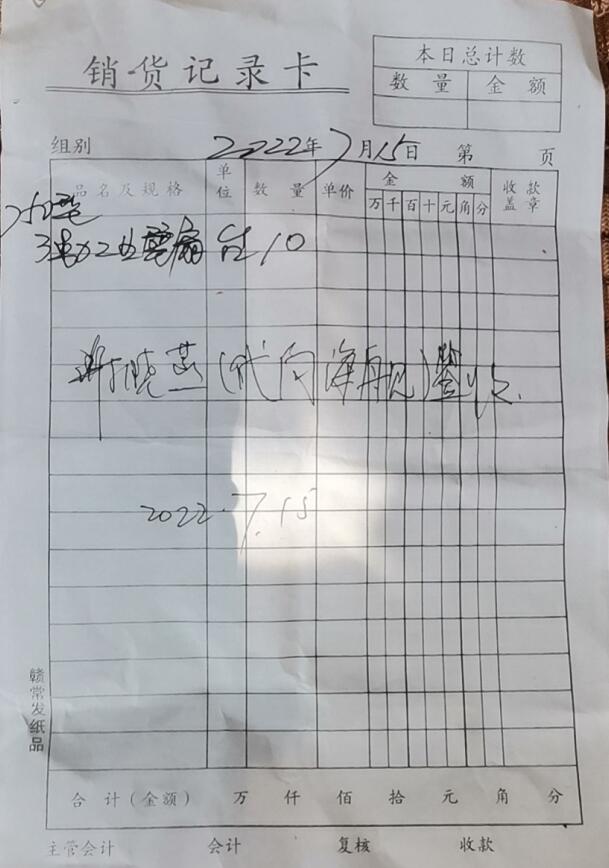 本日总计数
销货记录卡
数量 金额
组别 2022年7月15日 第 页
品名及规格 单位 数量 单价 金额 收款盖章
万千百十元角分
台 10
晓燕(代向海舰)签收
2022.7.15
赣常发纸品
合计(金额) 万 仟 佰 拾 元 角 分
主管会计 会计 复核 收款